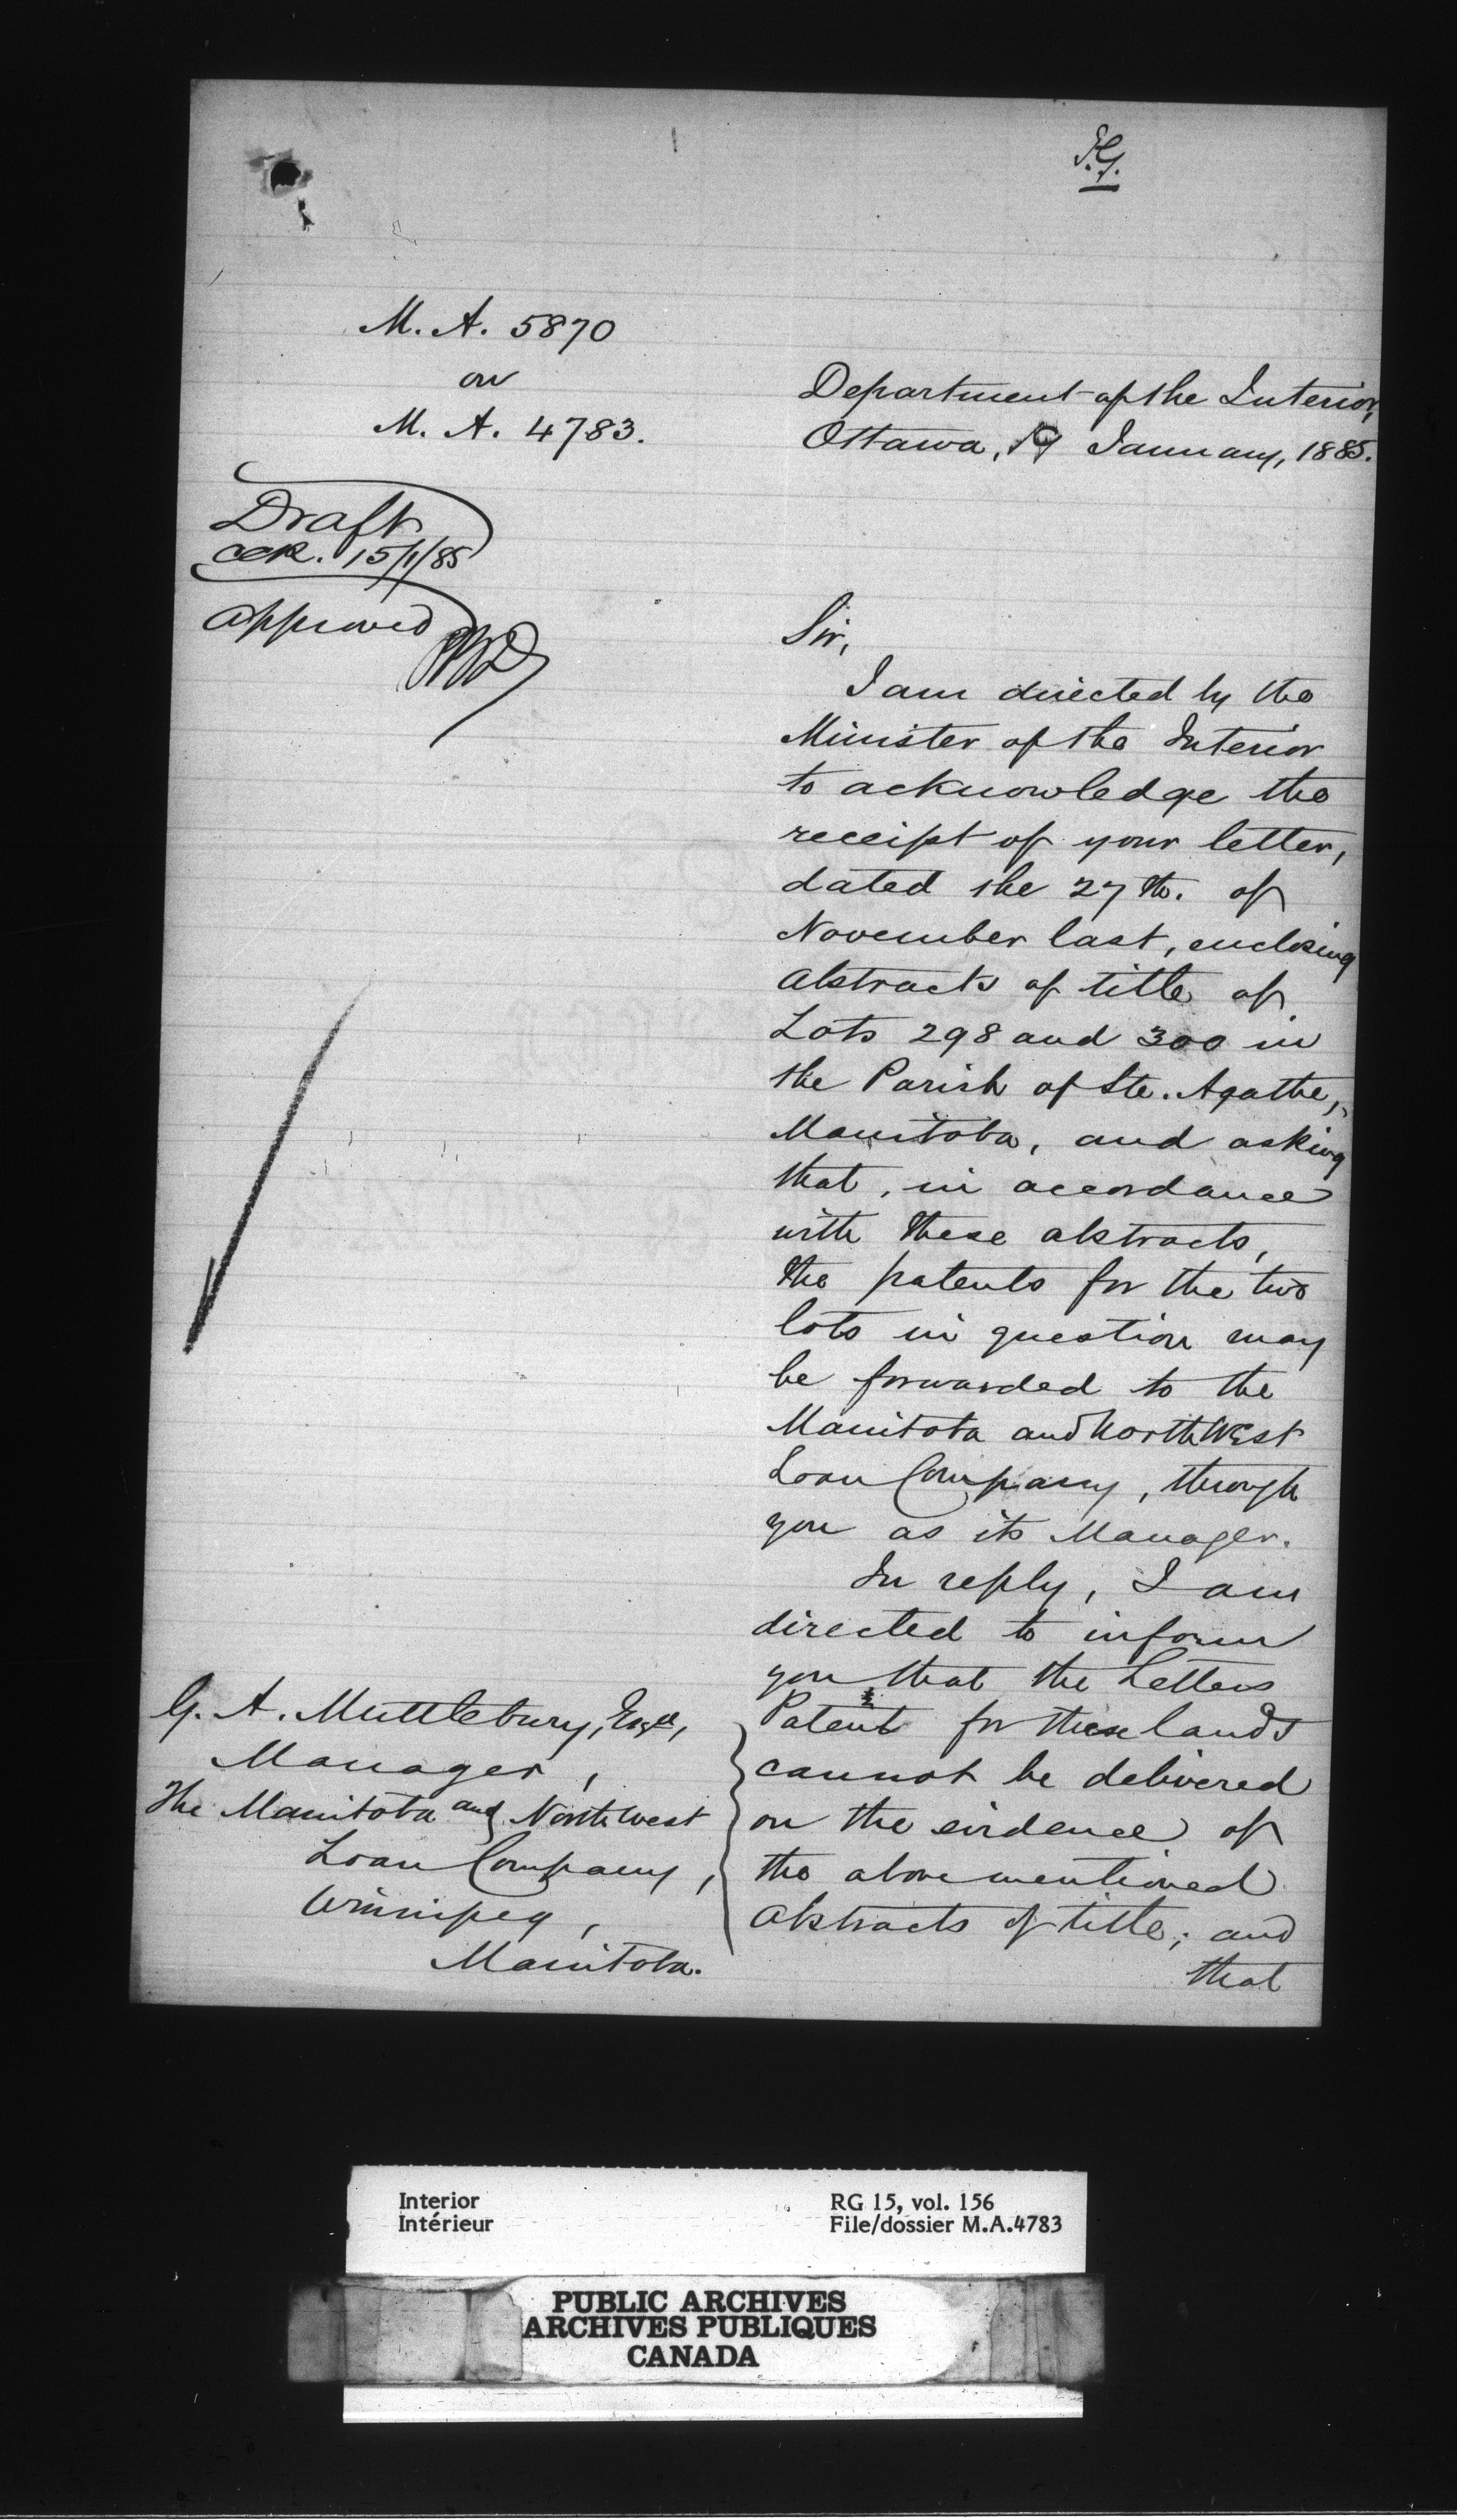 M. A. 5870
on
M. A. 4783.
Department of the Interior,
Ottawa, 19 January, 1885.
Draft
15/1/85
approved
Sir,
I am directed by the
Minister of the Interior
to acknowledge the
receipt of your letter,
dated the 27th. of
November last, enclosing
abstracts of title of
Lots 298 and 300 in
the Parish of Ste. Agathe,
Manitoba, and asking
that, in accordance
with these abstracts,
the patents for the two
lots in question may
be forwarded to the
Manitoba and North West
Loan Company, through
you as its Manager.
In reply, I am
directed to inform
you that the Letters
Patent for these lands
cannot be delivered
on the evidence of
the above mentioned
abstracts of title; and
that
G. A. Muttlebury, Esqre,
Manager,
The Manitoba and North West
Loan Company,
Winnipeg,
Manitoba.
Interior
Intérieur
RG 15, vol. 156
File/dossier M.A.4783
PUBLIC ARCHIVES
ARCHIVES PUBLIQUES
CANADA